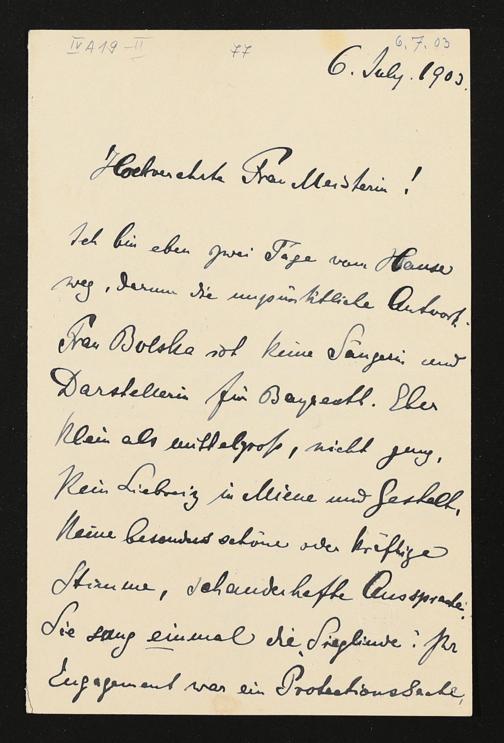 IV A 19 - II
77
6.7.03
6. July. 1903.
Hochverehrte Frau Meisterin!
Ich bin eben zwei Tage vom Hause
weg, darum die unpünktliche Antwort.
Frau Bolska ist keine Sängerin und
Darstellerin für Bayreuth. Eher
klein als mittelgroß, nicht jung,
kein Liebreiz in Miene und Gestalt,
keine besonders schöne oder kräftige
Stimme, schauderhafte Aussprache.
Sie sang einmal die „Sieglinde". Ihr
Engagement war ein Protectionssache,